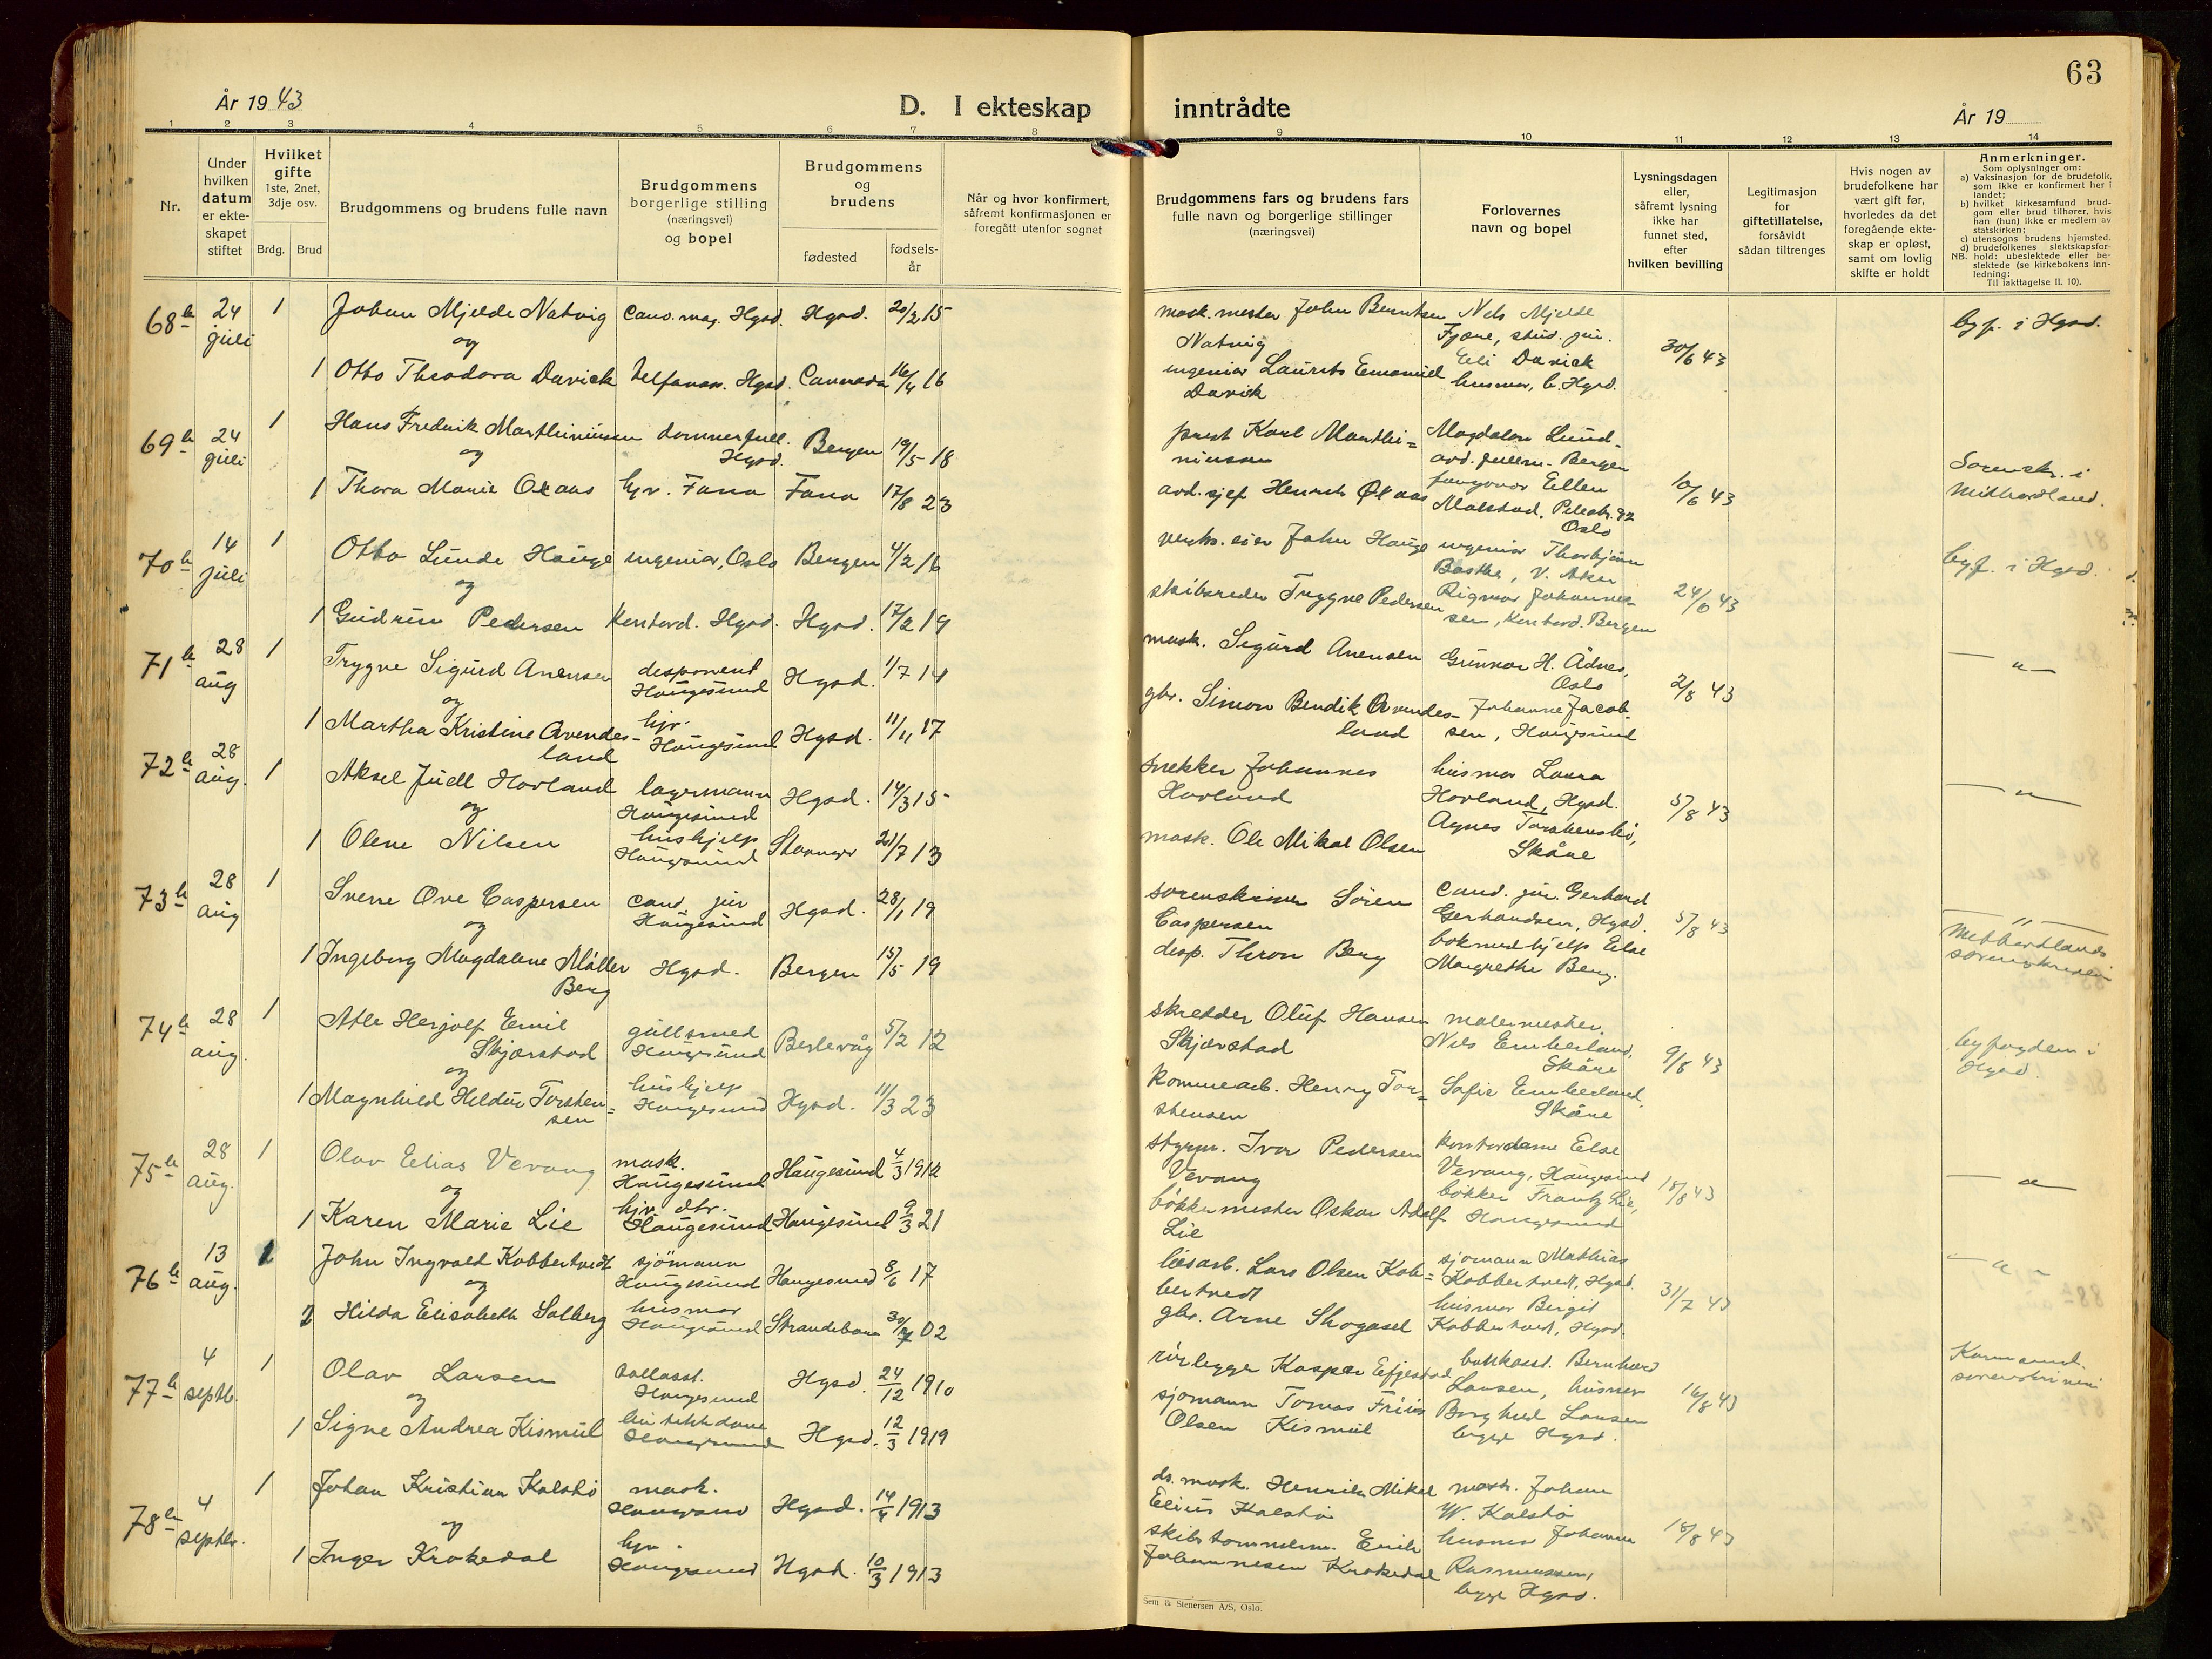 63
År 1943
D. I ekteskap inntrådte
År 19
1 2 3 4 5 6 7 8 9 10 11 12 13 14
Nr.
Under
hvilken
datum
er ekte-
skapet
stiftet
Hvilket
gifte
1ste, 2net,
3dje osv.
Brdg. Brud
Brudgommens og brudens fulle navn
Brudgommens
borgerlige stilling
(næringsvei)
og bopel
Brudgommens
og
brudens
fødested
fødsels-
år
Når og hvor konfirmert,
såfremt konfirmasjonen er
foregått utenfor sognet
Brudgommens fars og brudens fars
fulle navn og borgerlige stillinger
(næringsvei)
Forlovernes
navn og bopel
Lysningsdagen
eller,
såfremt lysning
ikke har
funnet sted,
efter
hvilken bevilling
Legitimasjon
for
giftetillatelse,
forsåvidt
sådan tiltrenges
Hvis nogen av
brudefolkene har
vært gift før,
hvorledes da det
foregående ekte-
skap er opløst,
samt om lovlig
skifte er holdt
Anmerkninger.
Som oplysninger om:
a) Vaksinasjon for de brudefolk,
som ikke er konfirmert her i
landet;
b) hvilket kirkesamfund brud-
gom eller brud tilhører, hvis
han (hun) ikke er medlem av
statskirken;
c) utensogns brudens hjemsted.
d) brudefolkenes slektskapsfor-
NB. hold: ubeslektede eller be-
slektede (se kirkebokens inn-
ledning:
Til iakttagelse II. 10).
68 24 juli 1 Johan Mjelde Natvig Hgsd. Hgsd. 20/2 15
og
1 Otto Theodora Davick Hgsd. 16/4 16
mask. mester John Berntsen
Natvig
ingeniør Laurits Emanuel
Davick
Nels Mjelde
Fjære, stud. jur.
Eli Davick
husmor, b. Hgsd.
30/6 43
byf. i Hgsd.
69 24 juli 1 Hans Fredrik Marthinussen dommerfull. Hgsd. Bergen 19/5 18
og
1 Thora Marie hjv. Fana Fana 17/8 23
prest Karl Marthi=
nussen
avd. sjef
Magdalon Lund-
Bergen
Ellen
Oslo
10/6 43
Sorenskr. i
Midhordland.
70 14 juli 1 Otto Lunde Hauge ingeniør, Oslo Bergen 4/2 16
og
1 Gudrun Pedersen kontord. Hgsd. Hgsd. 17/2 19
verks. eier John Hauge
skibsreder Trygve Pedersen
ingeniør Thorbjørn
V. Aker
Rigmor Johannes-
sen, kontord. Bergen
24/6 43
byf. i Hgsd.
71 28 aug 1 Trygve Sigurd Anensen disponent Haugesund Hgsd. 1/7 14
og
1 Martha Kristine Avendes-
land
hjv. Haugesund Hgsd. 11/11 17
mask. Sigurd Anensen
gbr. Simon Bendik Avendes-
land
Gunnar H. Ådnes,
Oslo
Johanne Jacob-
sen, Haugesund
2/8 43
— " —
72 28 aug. 1 Aksel Juell Hovland lagermann Haugesund Hgsd. 14/3 15
og
1 Olene Nilsen hushjelp Haugesund Stavanger 21/7 13
snekker Johannes
Hovland
mask. Ole Mikal Olsen
husmor Laura
Hovland, Hgsd.
Agnes
Skåre
5/8 43
— " —
73 28 aug 1 Sverre Ove Caspersen cand. jur Haugesund Hgsd. 28/1 19
og
1 Ingeborg Magdalene Møller
Berg
Hgsd. Bergen 15/5 19
sorenskriver Sören
Caspersen
disp. Thron Berg
cand. jur. Gerhard
Gerhardsen, Hgsd.
Else
Margrethe Berg.
5/8 43
— " —
Midthordlands
sorenskriveri
74 28 aug. 1 Atle Herjolf Emil
Skjærstad
gullsmed Haugesund Berlevåg 5/2 12
og
1 Magnhild Hildur Torsten=
sen
hushjelp Haugesund Hgsd. 11/3 23
skredder Oluf Hansen
Skjærstad
kommearb. Henry Tor=
stensen
malermester.
Nils Emberland,
Skåre
Sofie Emberland,
Skåre
9/8 43
byfogden i
Hgsd.
75 28 aug. 1 Olav Elias Vevang mask. Haugesund Haugesund 4/3 1912
og
1 Karen Marie Lie hjv. dtr. Haugesund Haugesund 9/3 21
styrm. Ivar Pedersen
Vevang
bökkermester Oskar Adolf
Lie
kontordame Else
Vevang, Haugesund
bökker Frantz Lie,
Haugesund
18/8 43
— " —
76 13 aug. 1 John Ingvald Kobbertvedt sjömann Haugesund Haugesund 8/6 17
og
2 Hilda Elisabeth Solberg husmor Haugesund Strandebarm 30/7 02
løsarb. Lars Olsen Kob=
bertvedt
gbr. Arne Skogasel
sjomann Mathias
Kobbertvedt, Hgsd.
husmor Bergit
Kobbertvedt, Hgsd.
31/7 43
— " —
77 4 septb. 1 Olav Larsen Haugesund Hgsd. 24/12 1910
og
1 Signe Andrea Kismul Haugesund Hgsd. 12/3 1919
rørlegger Kasper Efjestad
sjomann Tomas Friis
Olsen Kismul
Bernhard
Larsen, husmor
Borghild Larsen
begge Hgsd.
16/8 43
Karmsund.
sorenskriveri
78 4 septbr. 1 Johan Kristian Kalstø mask. Haugesund Hgsd. 14/4 1913
og
1 Inger Krokedal hjv. Haugesund Hgsd. 10/3 1913
ds. mask. Henrik Mikal
Elius Kalstø
skibstømmerm. Erik
Johannesen Krokedal
mask. Johan
W. Kalstø
husmor Johanne
Rasmussen,
begge Hgsd.
18/8 43
Sem & Stenersen A/S, Oslo.